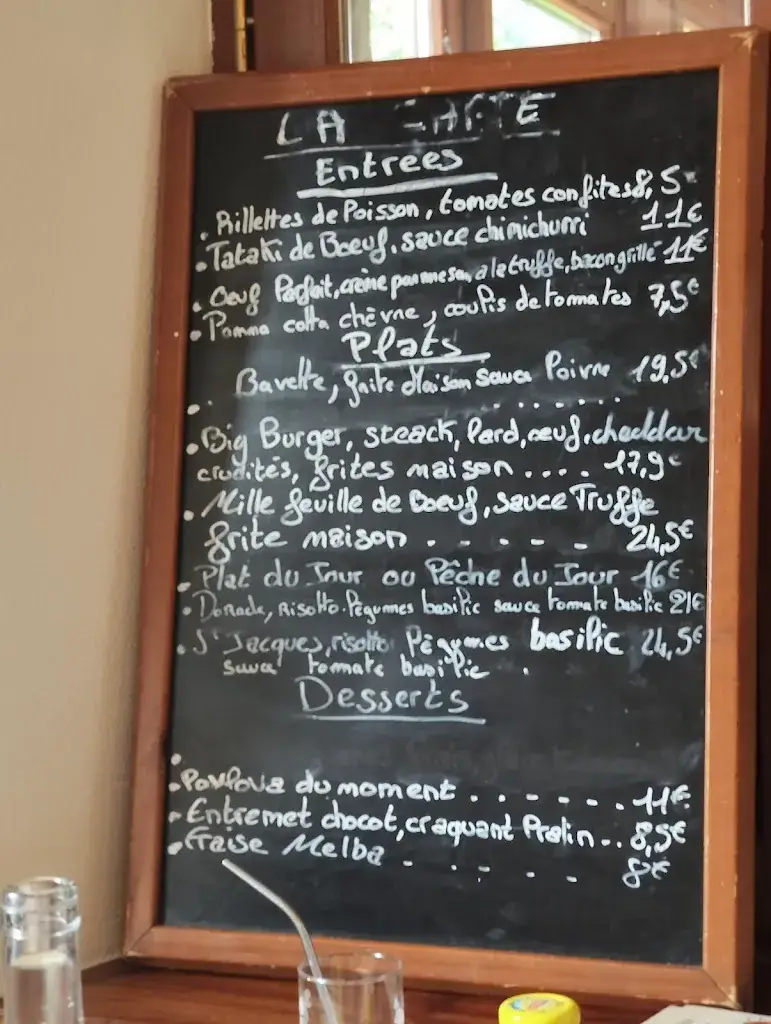 LA CARTE
Entrees
. Rillettes de Poisson, tomates confites 8,5€
. Tataki de Boeuf, sauce chimichurri 11€
. Oeuf Parfait, crème parmesan à la truffe, bacon grillé 11€
. Panna cotta chèvre, coulis de tomates 7,5€
Plats
. Bavette, frite Maison sauce Poivre 19,5€
. . . . . . .
. Big Burger, steack, lard, oeuf, cheddar
crudités, frites maison . . . . 17,9€
. Mille feuille de Boeuf, sauce Truffe
frite maison . . . . . 24,5€
. Plat du Jour ou Pêche du Jour 16€
. Dorade, risotto légumes basilic sauce tomate basilic 21€
. St Jacques, risotto légumes basilic 24,5€
sauce tomate basilic .
Desserts
. Pavlova du moment . . . . . . . 11€
. Entremet chocot, craquant Pralin . . 8,5€
. Fraise Melba . . . . . 8€